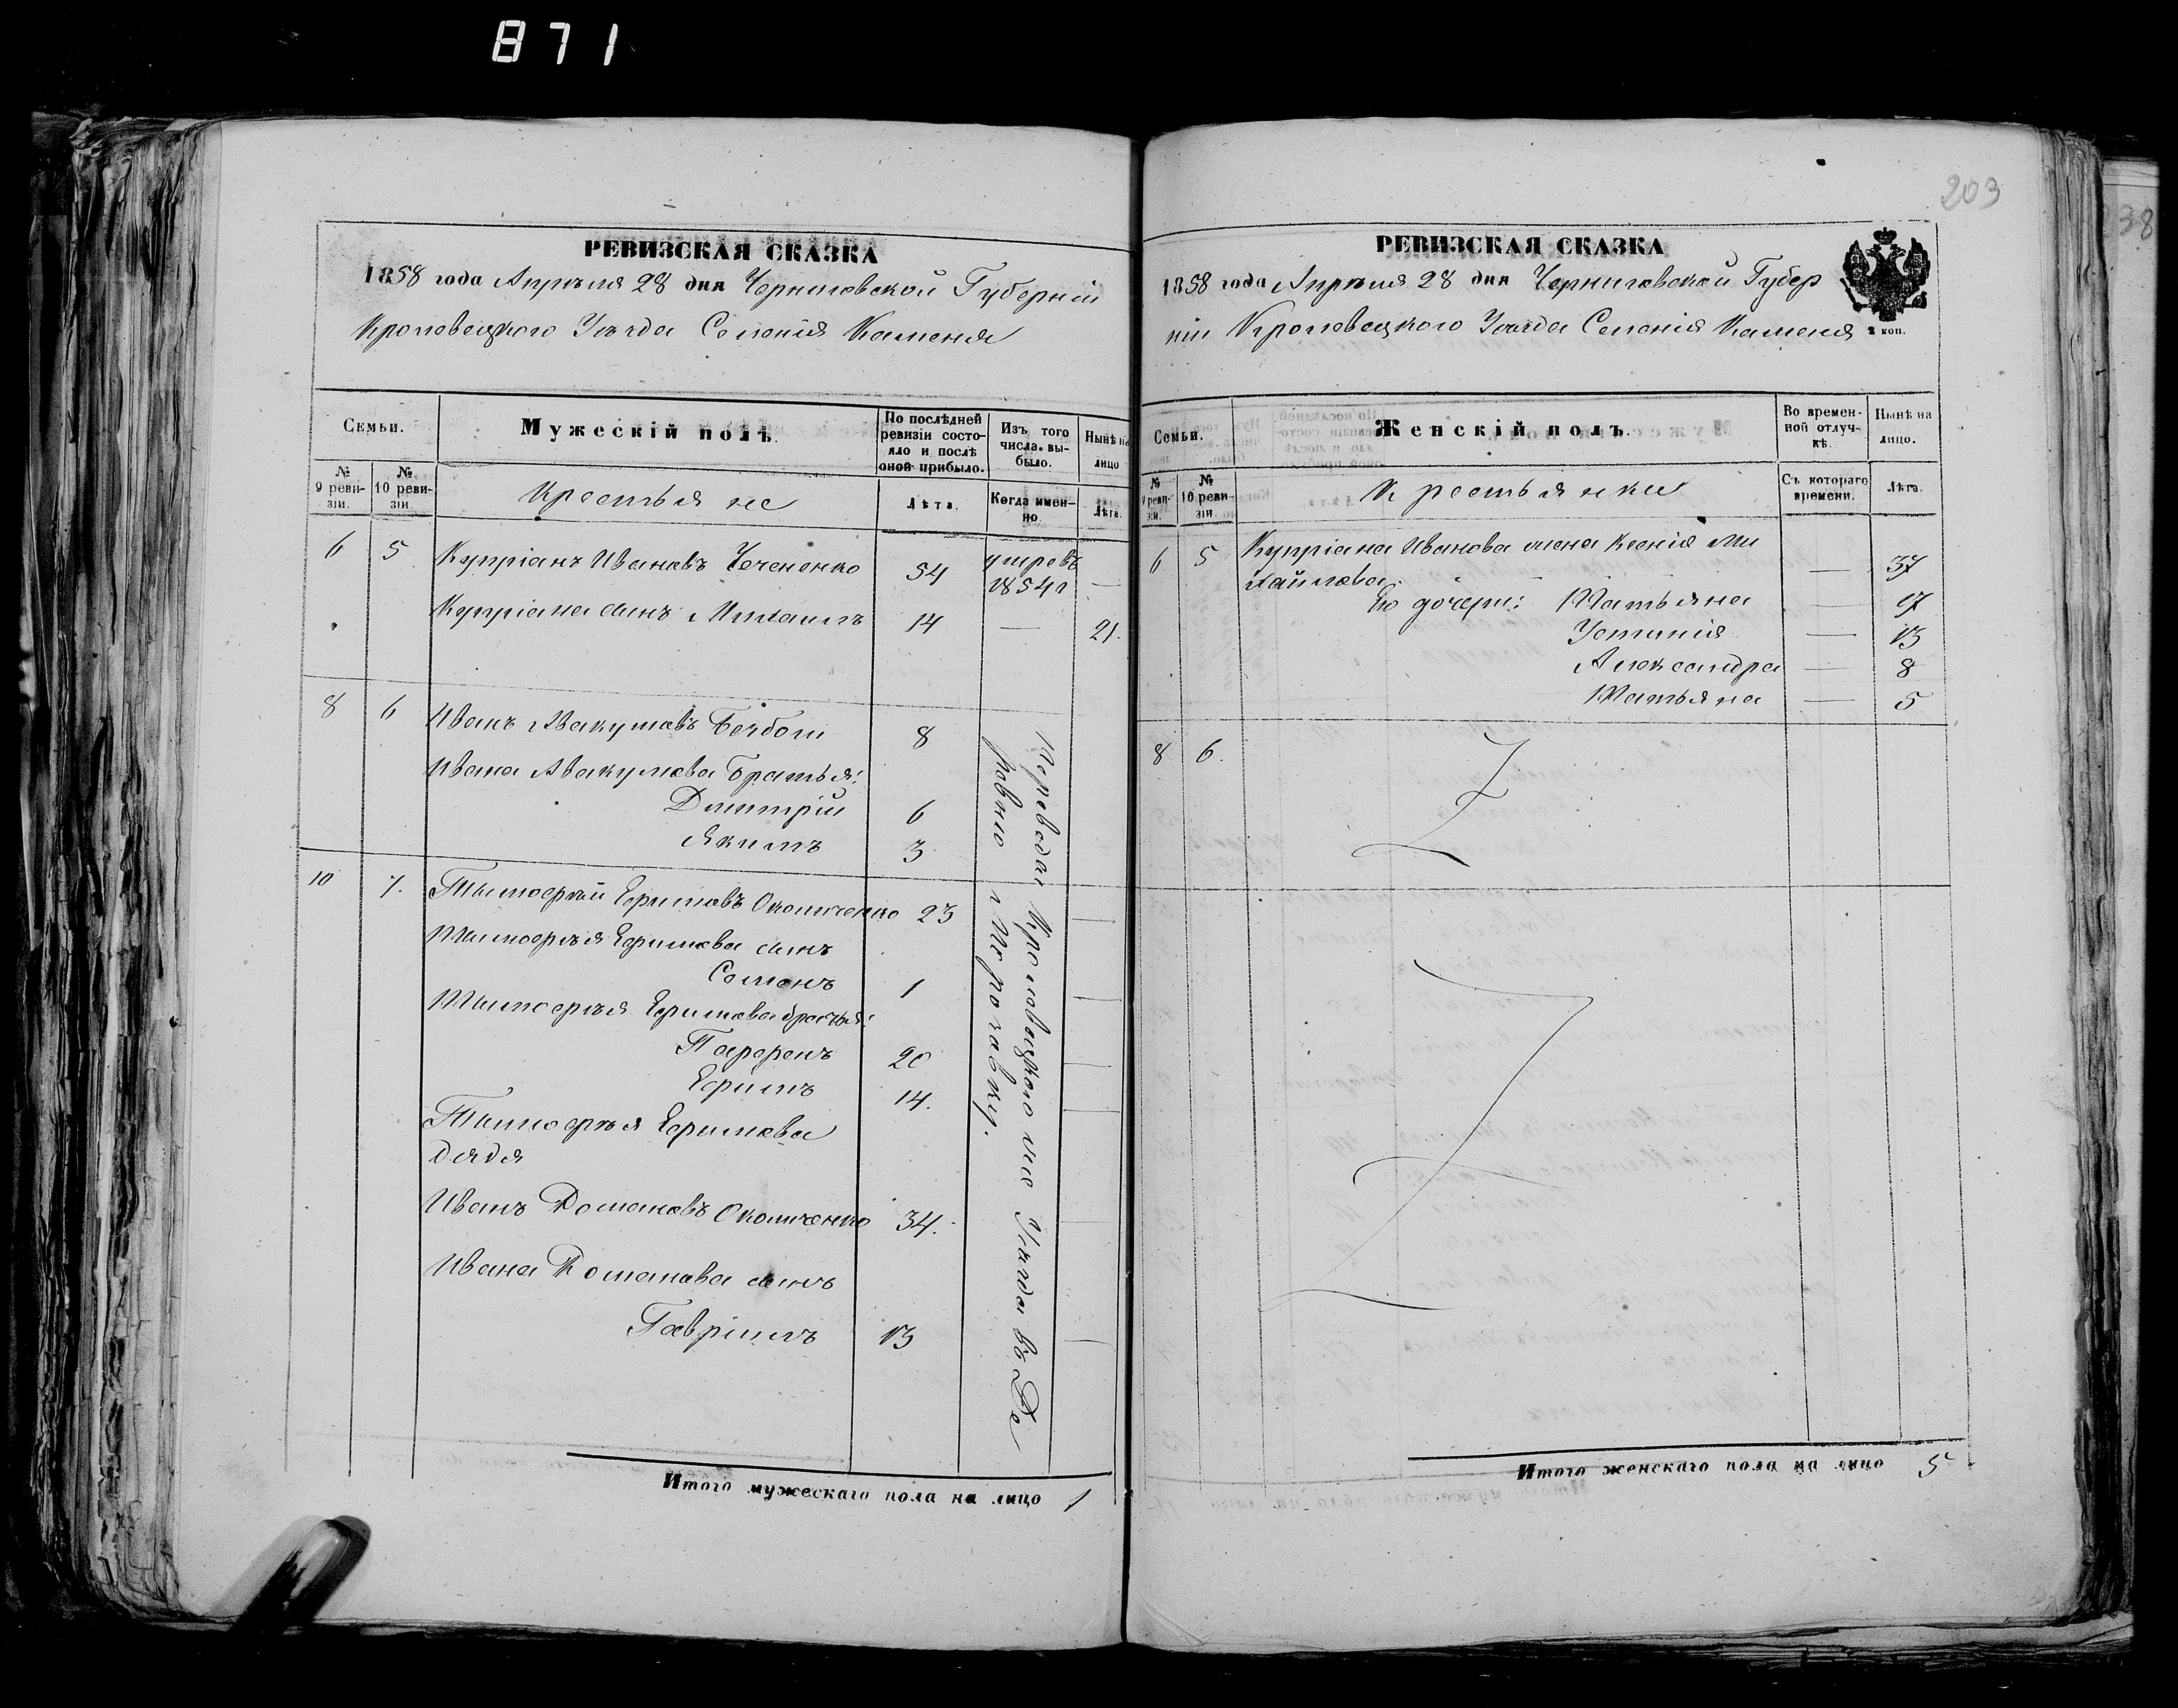 871
РЕВИЗСКАЯ СКАЗКА
1858 года Апрѣля 28 дня Черниговской Губерніи
Кролевецкого Уѣзда Селенія Каменя
Семьи.
Мужескій полъ.
По послѣдней ревизіи состояло и послѣ оной прибыло.
Изъ того числа выбыло.
Нынѣ на лицо
№ 9 ревизіи.
№ 10 ревизіи.
Крестьяне
Лѣта.
Когда именно.
Лѣта.
6 5 Купріанъ Ивановъ Чечененко 54 умеръ 1854 г —
Купріана сынъ Михаилъ 14 — 21.
8 6 Иванъ Авакумовъ 8
Ивана Авакумова братья:
Дмитрій 6
Якимъ 3
10 7. Тимоѳей Ефимовъ 23 —
Тимоѳея Ефимова сынъ
Семенъ 1 —
Тимоѳея Ефимова братья:
Парфенъ 20 —
Ефимъ 14. —
Тимоѳея Ефимова
дядя
Иванъ Романовъ 34. —
Ивана Романова сынъ
Гавріилъ 13 —
Переведены Кролевецкого же Уѣзда въ Де
ревню
Итого мужескаго пола на лицо 1
203
РЕВИЗСКАЯ СКАЗКА
1858 года Апрѣля 28 дня Черниговской Губер
ніи Кролевецкого Уѣзда Селенія Каменя
2 коп.
Семьи.
Женскій полъ.
Во временной отлучкѣ.
Нынѣ на лицо.
№ 9 ревизіи.
№ 10 ревизіи.
Крестьянки
Съ котораго времени.
Лѣта.
6 5 Купріана Иванова жена Ксенія Ми
хайлова — 37
Его дочери: Татьяна — 17
Устинія — 13
Александра — 8
Татьяна — 5
8 6.
Итого женскаго пола на лицо 5
38